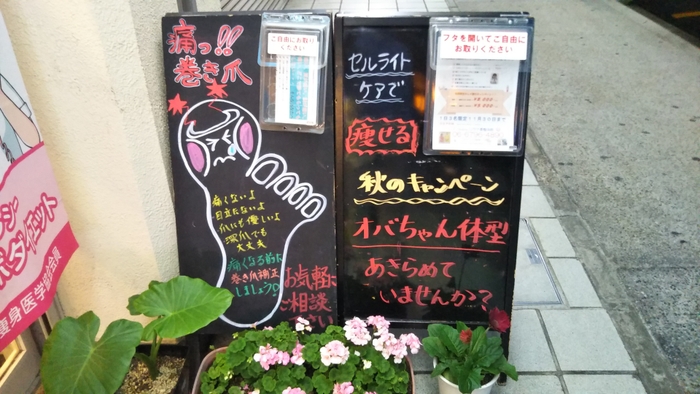 痛っ!!
巻き爪
ご自由にお取り
ください
痛くないよ
目立たないよ
爪にも優しいよ
深爪でも
大丈夫
痛くなる前に
巻き爪補正
しましょう!
お気軽に
ご相談
下さい
フタを開いてご自由に
お取りください
セルライト
ケアで
痩せる
秋のキャンペーン
オバちゃん体型
あきらめて
いませんか?
痩身医学協会会員